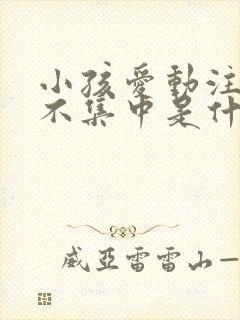 小孩愛動注
不集中是什
威亞雷雷山一